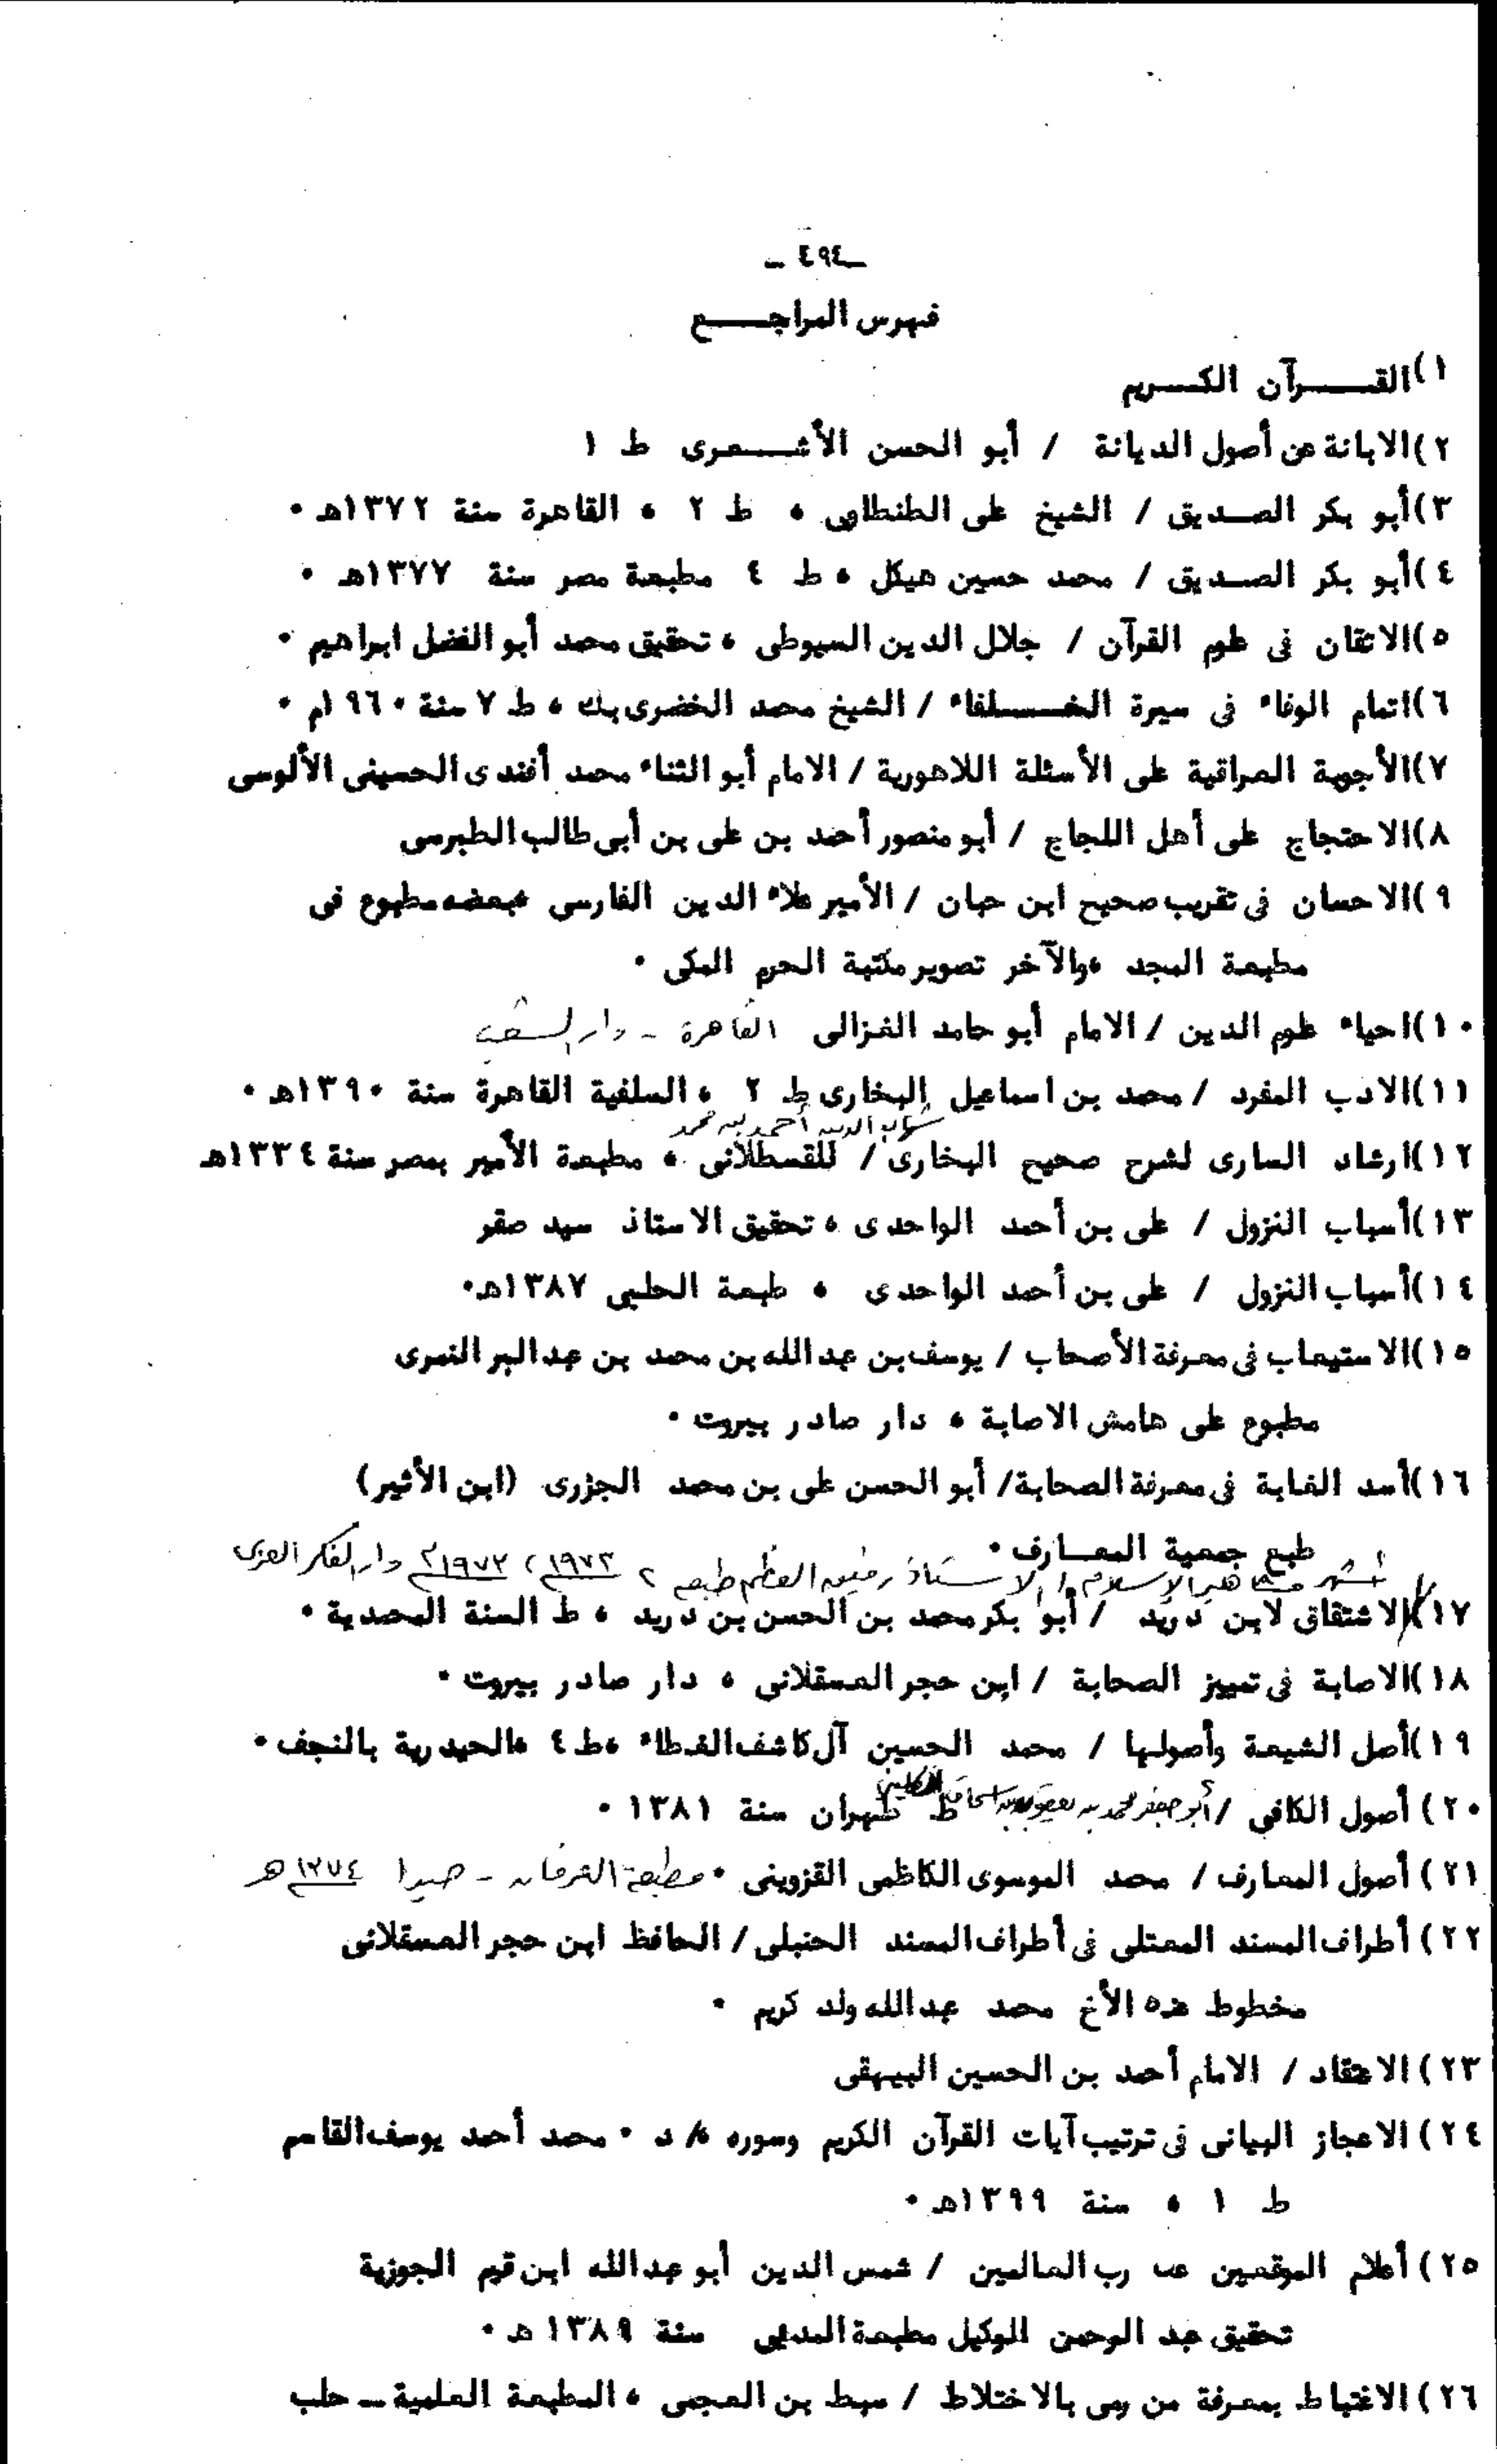 ـ ٤٩٤ ـ
فهرس المراجـــع
١)القـــرآن الكـــريم
٢)الابانة عن أصول الديانة / أبو الحسن الأشـــعرى ط ١
٣)أبو بكر الصـديق / الشيخ على الطنطاوى ، ط ٢ ، القاهرة سنة ١٣٧٢هـ .
٤)أبو بكر الصـديق / محمد حسين هيكل ، ط ٤ مطبعة مصر سنة ١٣٧٧هـ .
٥)الاتقان فى علوم القرآن / جلال الدين السيوطى ، تحقيق محمد أبو الفضل ابراهيم .
٦)اتمام الوفاء فى سيرة الخـــلفاء / الشيخ محمد الخضرى بك ، ط ٧ سنة ١٩٦٠م .
٧)الأجوبة العراقية على الأسئلة اللاهورية / الامام أبو الثناء محمد أفندى الحسينى الألوسى
٨)الاحتجاج على أهل اللجاج / أبو منصور أحمد بن على بن أبى طالب الطبرسى
٩)الاحسان فى تقريب صحيح ابن حبان / الأمير علاء الدين الفارسى ،بعضه مطبوع فى
مطبعة المجد ،والآخر تصوير مكتبة الحرم المكى .
١٠)احياء علوم الدين / الامام أبو حامد الغزالى القاهرة - دار الشعب
١١)الادب المفرد / محمد بن اسماعيل البخارى ط ٢ ، السلفية القاهرة سنة ١٣٩٠هـ .
شهاب الدين أحمد بن محمد
١٢)ارشاد السارى لشرح صحيح البخارى / للقسطلانى . ، مطبعة الأمير بمصر سنة ١٣٣٤هـ
١٣)أسباب النزول / على بن أحمد الواحدى ، تحقيق الاستاذ سيد صقر
١٤)أسباب النزول / على بن أحمد الواحدى ، طبعة الحلبى ١٣٨٧هـ.
١٥)الاستيعاب فى معرفة الأصحاب / يوسف بن عبد الله بن محمد بن عبد البر النمرى
مطبوع على هامش الاصابة ، دار صادر بيروت .
١٦)أسد الغابة فى معرفة الصحابة/ أبو الحسن على بن محمد الجزرى (ابن الأثير)
طبع جمعية المعـارف .
أشهر مشاهير الإسلام / الاستاذ رفيق العظم طبعة ٢ ١٩٧٣ / ١٩٧٢م دار الفكر العربى
١٧)الاشتقاق لابن دريد / أبو بكر محمد بن الحسن بن دريد ، ط السنة المحمدية .
١٨)الاصابة فى تمييز الصحابة / ابن حجر العسقلانى ، دار صادر بيروت .
١٩)أصل الشيعة وأصولها / محمد الحسين آل كاشف الغطاء ،ط ٤ ،الحيدرية بالنجف .
٢٠) أصول الكافى / أبو جعفر محمد بن يعقوب بن اسحاق الكلينى ط طهران سنة ١٣٨١ .
٢١) أصول المعارف / محمد الموسوى الكاظمى القزوينى . مطبعة العرفان - صيدا ١٣٧٤هـ
٢٢) أطراف المسند المعتلى فى أطراف المسند الحنبلى / الحافظ ابن حجر العسقلانى
مخطوط عند الأخ محمد عبد الله ولد كريم .
٢٣) الاعتقاد / الامام أحمد بن الحسين البيهقى
٢٤) الاعجاز البيانى فى ترتيب آيات القرآن الكريم وسوره / د . محمد أحمد يوسف القاسم
ط ١ ، سنة ١٣٩٩هـ .
٢٥) أعلام الموقعين عن رب العالمين / شمس الدين أبو عبد الله ابن قيم الجوزية
تحقيق عبد الرحمن الوكيل مطبعة المدنى سنة ١٣٨٩ هـ .
٢٦) الاغتباط بمعرفة من رمى بالاختلاط / سبط بن العجمى ، المطبعة العلمية ـ حلب